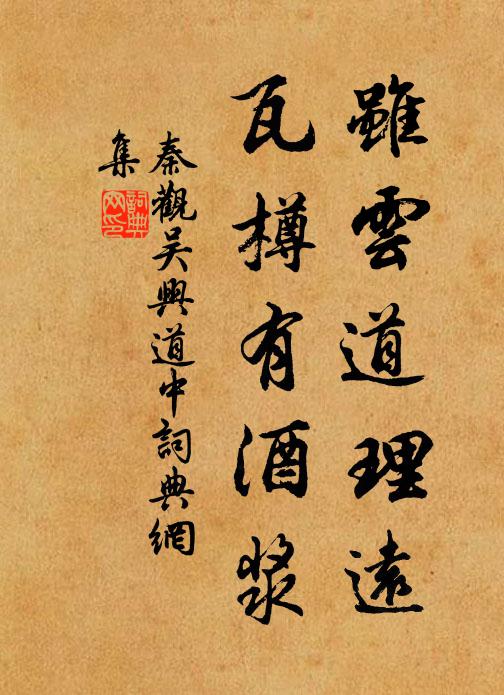 雖雲道理遠
瓦樽有酒漿
秦觀吴興道中詞典網
集
詞典
网印